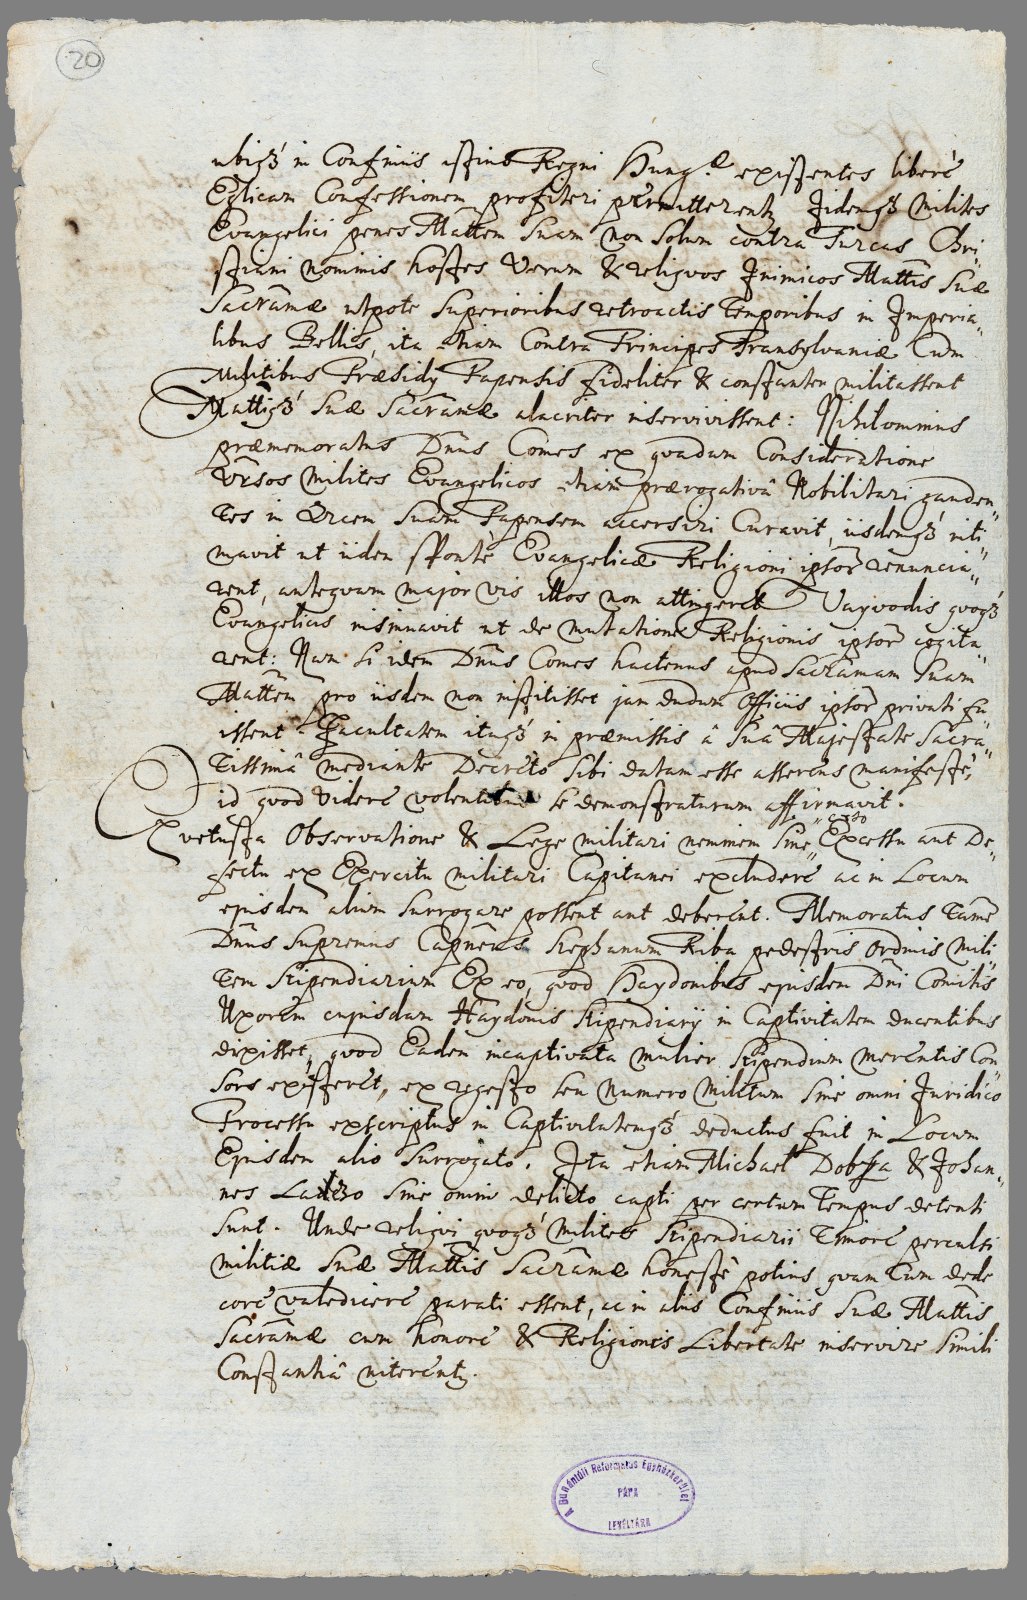 20
ubiq3 in Confiniis istius Regni Hung.æ existentes liberè
Eglicam Confessionem profiteri permitterentz Iidemq3 Milites
Evangelici penes Mattem Suam non Solum contra Turcas Chri„
stiani nominis hostes Verum & reliqvos Inimicos Mattis Suæ
Sacramæ utpote Superioribus retroactis Temporibus in Imperia„
libus Bellis, ita etiam Contra Principes Transylvaniæ Cum
Militibus Præsidy Papensis fideliter & constanter militassent
Mattiq3 Suæ Sacramæ alacriter inservivissent: Nihilominus
præmemoratus Dnus Comes ex qvadam Consideratione
Milites Evangelicos etiam prærogativâ Nobilitari gauden„
tes in Arcem Suam Papensem accersiri Curavit, iisdemq3 inti„
mavit ut iidem spontè Evangelicæ Religioni ipsor renuncia„
rent, anteqvam major vis illos non attingeret Vayvodis qvoq3
Evangelicis insinuavit ut de mutatione Religionis ipsor cogita„
rent: Nam Si idem Dnus Comes hactenus apud Sacramam Suam
Mattem pro iisdem non institisset jam dudum Officiis ipsor privati fu„
issent. Facultatem itaq3 in præmissis â Suâ Majestate Sacra„
tissimâ mediante Decreto Sibi datam esse asserens manifestè,
id qvod videre volentibus se demonstraturum affirmavit.
Ex vetusta Observatione & Lege militari neminem Sine Excessu aut De„
fectu ex Exercitu militari Capitanei excludere ac in Locum
ejusdem alium Surrogare possent aut deberent. Memoratus tamē
Dnus Supremus Capneus Stephanum Riba pedestris Ordinis Mili„
tem Stipendiarium Ex eo, qvod Haydonibus ejusdem Dni Comitis
Uxorem cujusdam Haydonis Stipendiarii in Captivitatem ducentibus
dixisset, qvod Eadem incaptivata mulier Stipendium merentis Con„
sors existeret, ex regesto seu Numero Militum Sine omni Iuridico
Processu exscriptus in Captivitatemq3 deductus fuit in Locum
Ejusdem alio Surrogato. Ita etiam Michael Dobsa & Johan„
nes Sine omni delicto capti per certum Tempus detenti
Sunt. Unde reliqvi qvoq3 Milites Stipendiarii Timore perculsi
militiæ Suæ Mattis Sacramæ honestè potius qvam Cum dede
core valedicere parati essent, ac in aliis Confiniis Suæ Mattis
Sacramæ cum honore & Religionis Libertate inservire Simili
Constantiâ niterentz.
A Dunántúli Református Egyházkerület
PÁPA
LEVÉLTÁRA